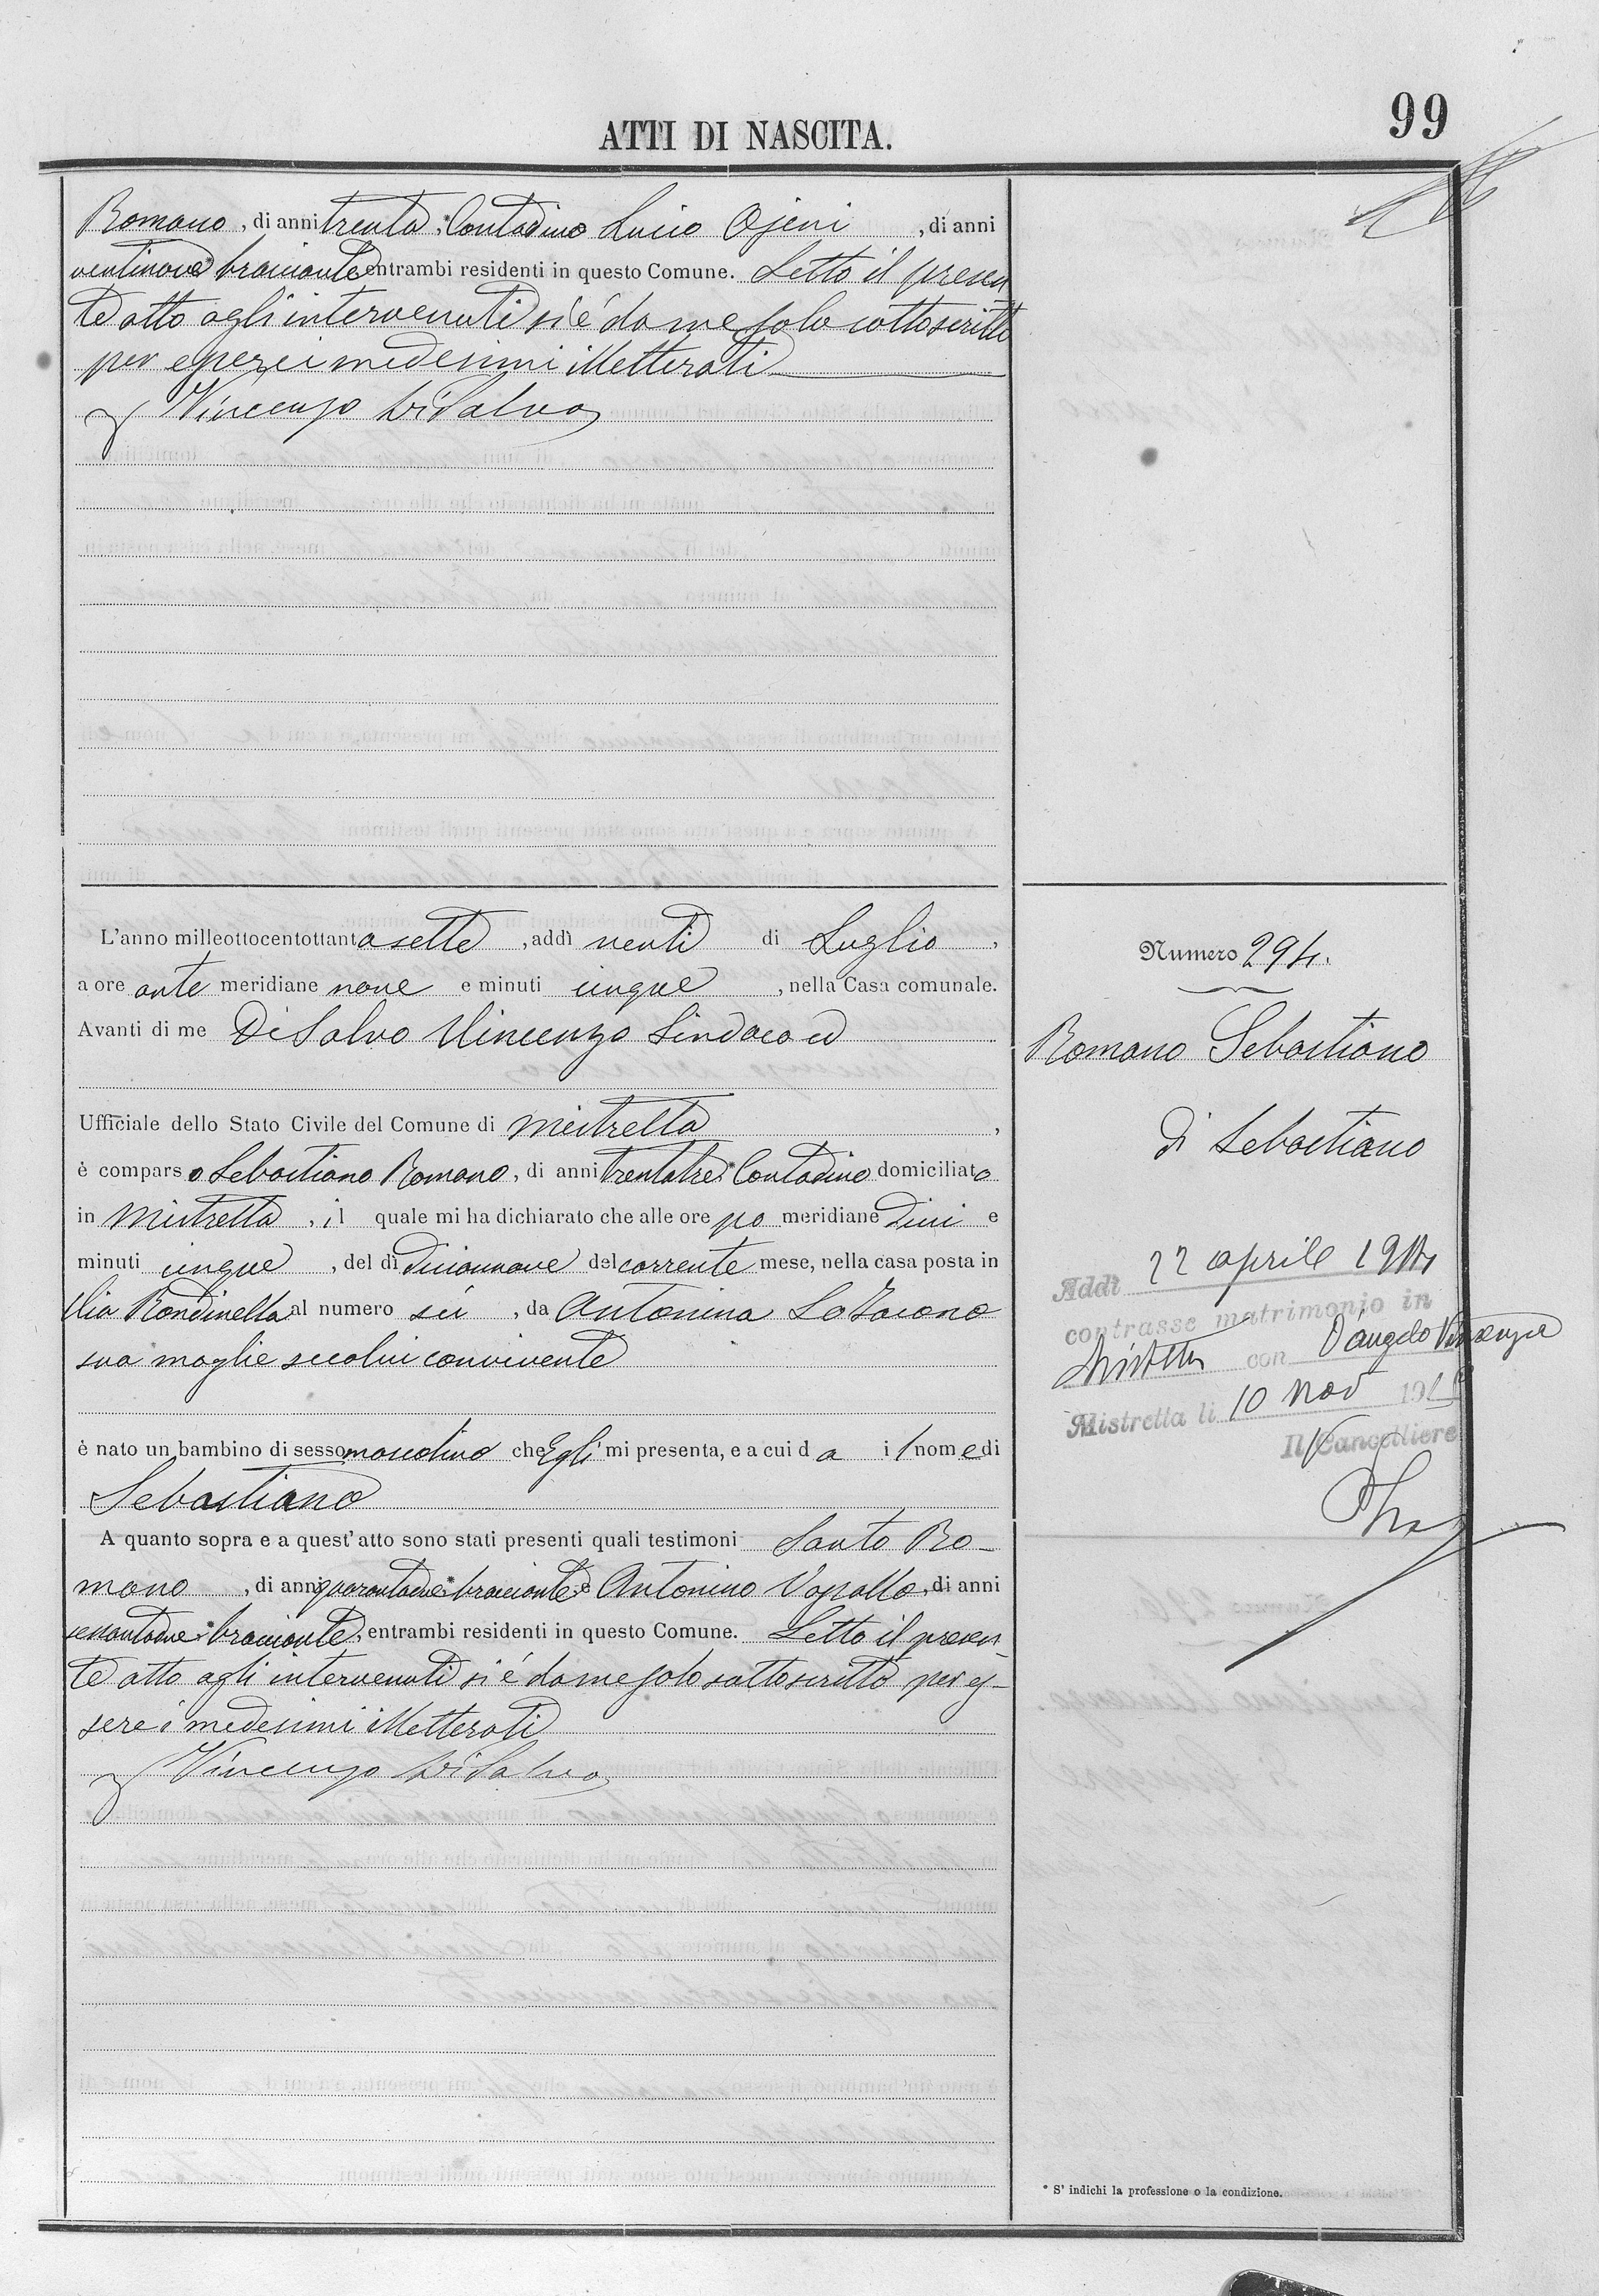 99
ATTI DI NASCITA.
Romano, di anni trenta, Contadino Lucio Ojeni, di anni
ventinove, bracciante entrambi residenti in questo Comune. Letto il presen
te atto agli intervenuti si è da me solo sottoscritto
per essere i medesimi illetterati
Vincenzo Di Salvo
L'anno milleottocentottantasette, addì venti di Luglio,
a ore ante meridiane nove e minuti cinque, nella Casa comunale.
Avanti di me Di Salvo Vincenzo Sindaco ed
Ufficiale dello Stato Civile del Comune di Mistretta,
è comparso Sebastiano Romano, di anni trentatre, Contadino domiciliato
in Mistretta, il quale mi ha dichiarato che alle ore po meridiane dieci e
minuti cinque, del dì diciannove del corrente mese, nella casa posta in
Via Rondinella al numero sei, da Antonina Lo Iacono
sua moglie secolui convivente
è nato un bambino di sesso mascolino che Egli mi presenta, e a cui dà il nome di
Sebastiano
A quanto sopra e a quest'atto sono stati presenti quali testimoni Santo Ro-
mano, di anni bracciante, e Antonino, di anni
bracciante, entrambi residenti in questo Comune. Letto il presen-
te atto agli intervenuti si è da me solo sottoscritto per es-
sere i medesimi illetterati
Vincenzo Di Salvo
Numero 294.
Romano Sebastiano
di Sebastiano
Addì 22 aprile
contrasse matrimonio in
Mistretta con D'angelo Vincenza
Mistretta li 10 Nov
Il Cancelliere
* S' indichi la professione o la condizione.